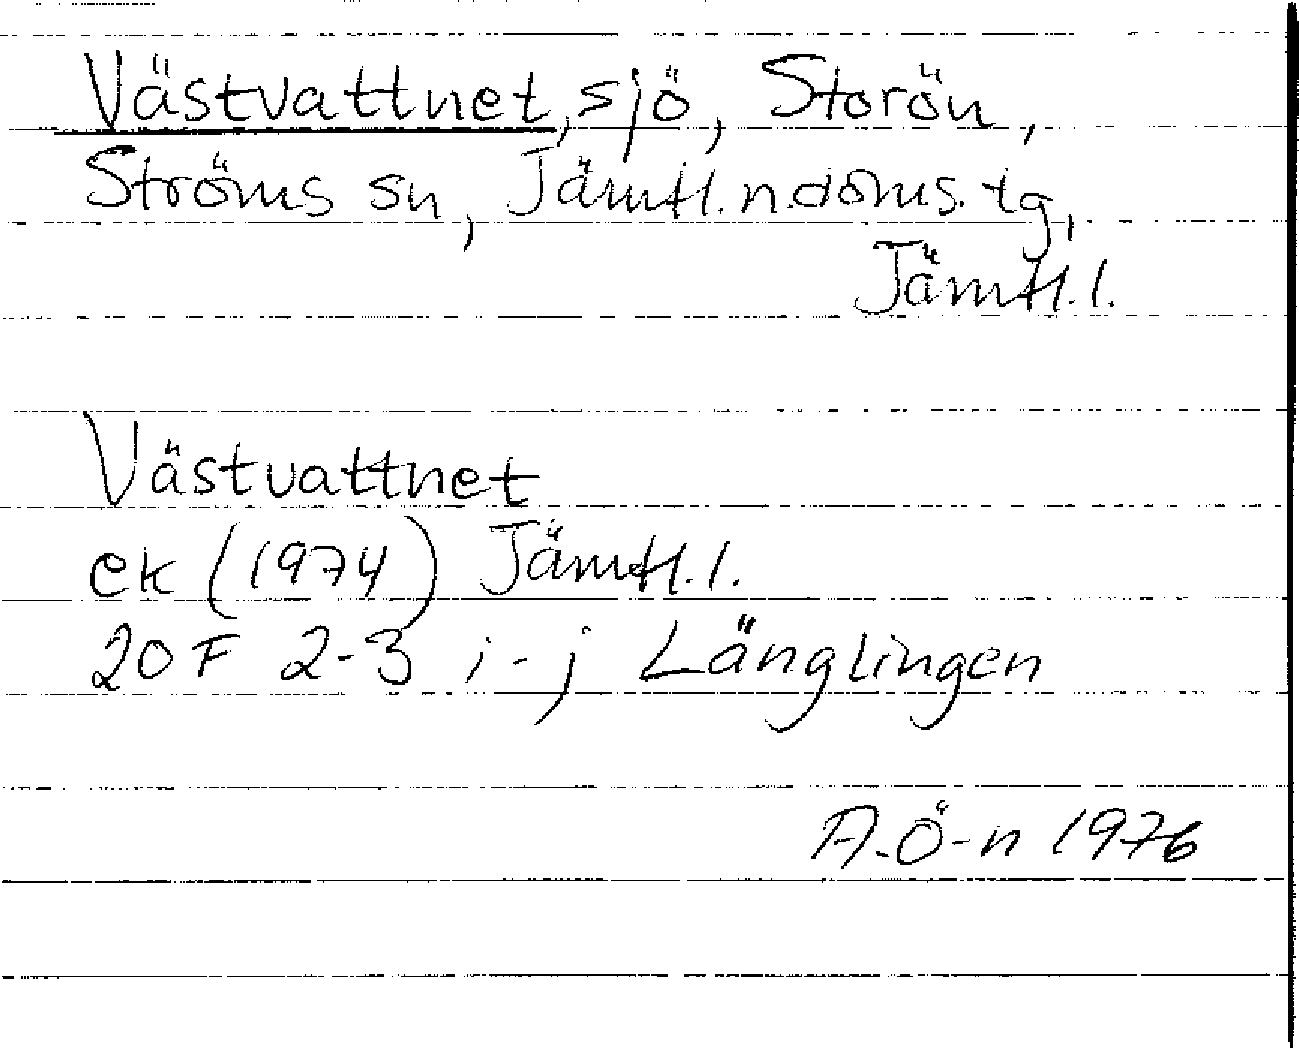 Västvattnet, sjö, Storön,
Ströms sn, Jämtl. n. doms. tg,
Jämtl. l.
Västvattnet
ek (1974) Jämtl. l.
20 F 2-3 i-j Länglingen
A. Ö-n 1976